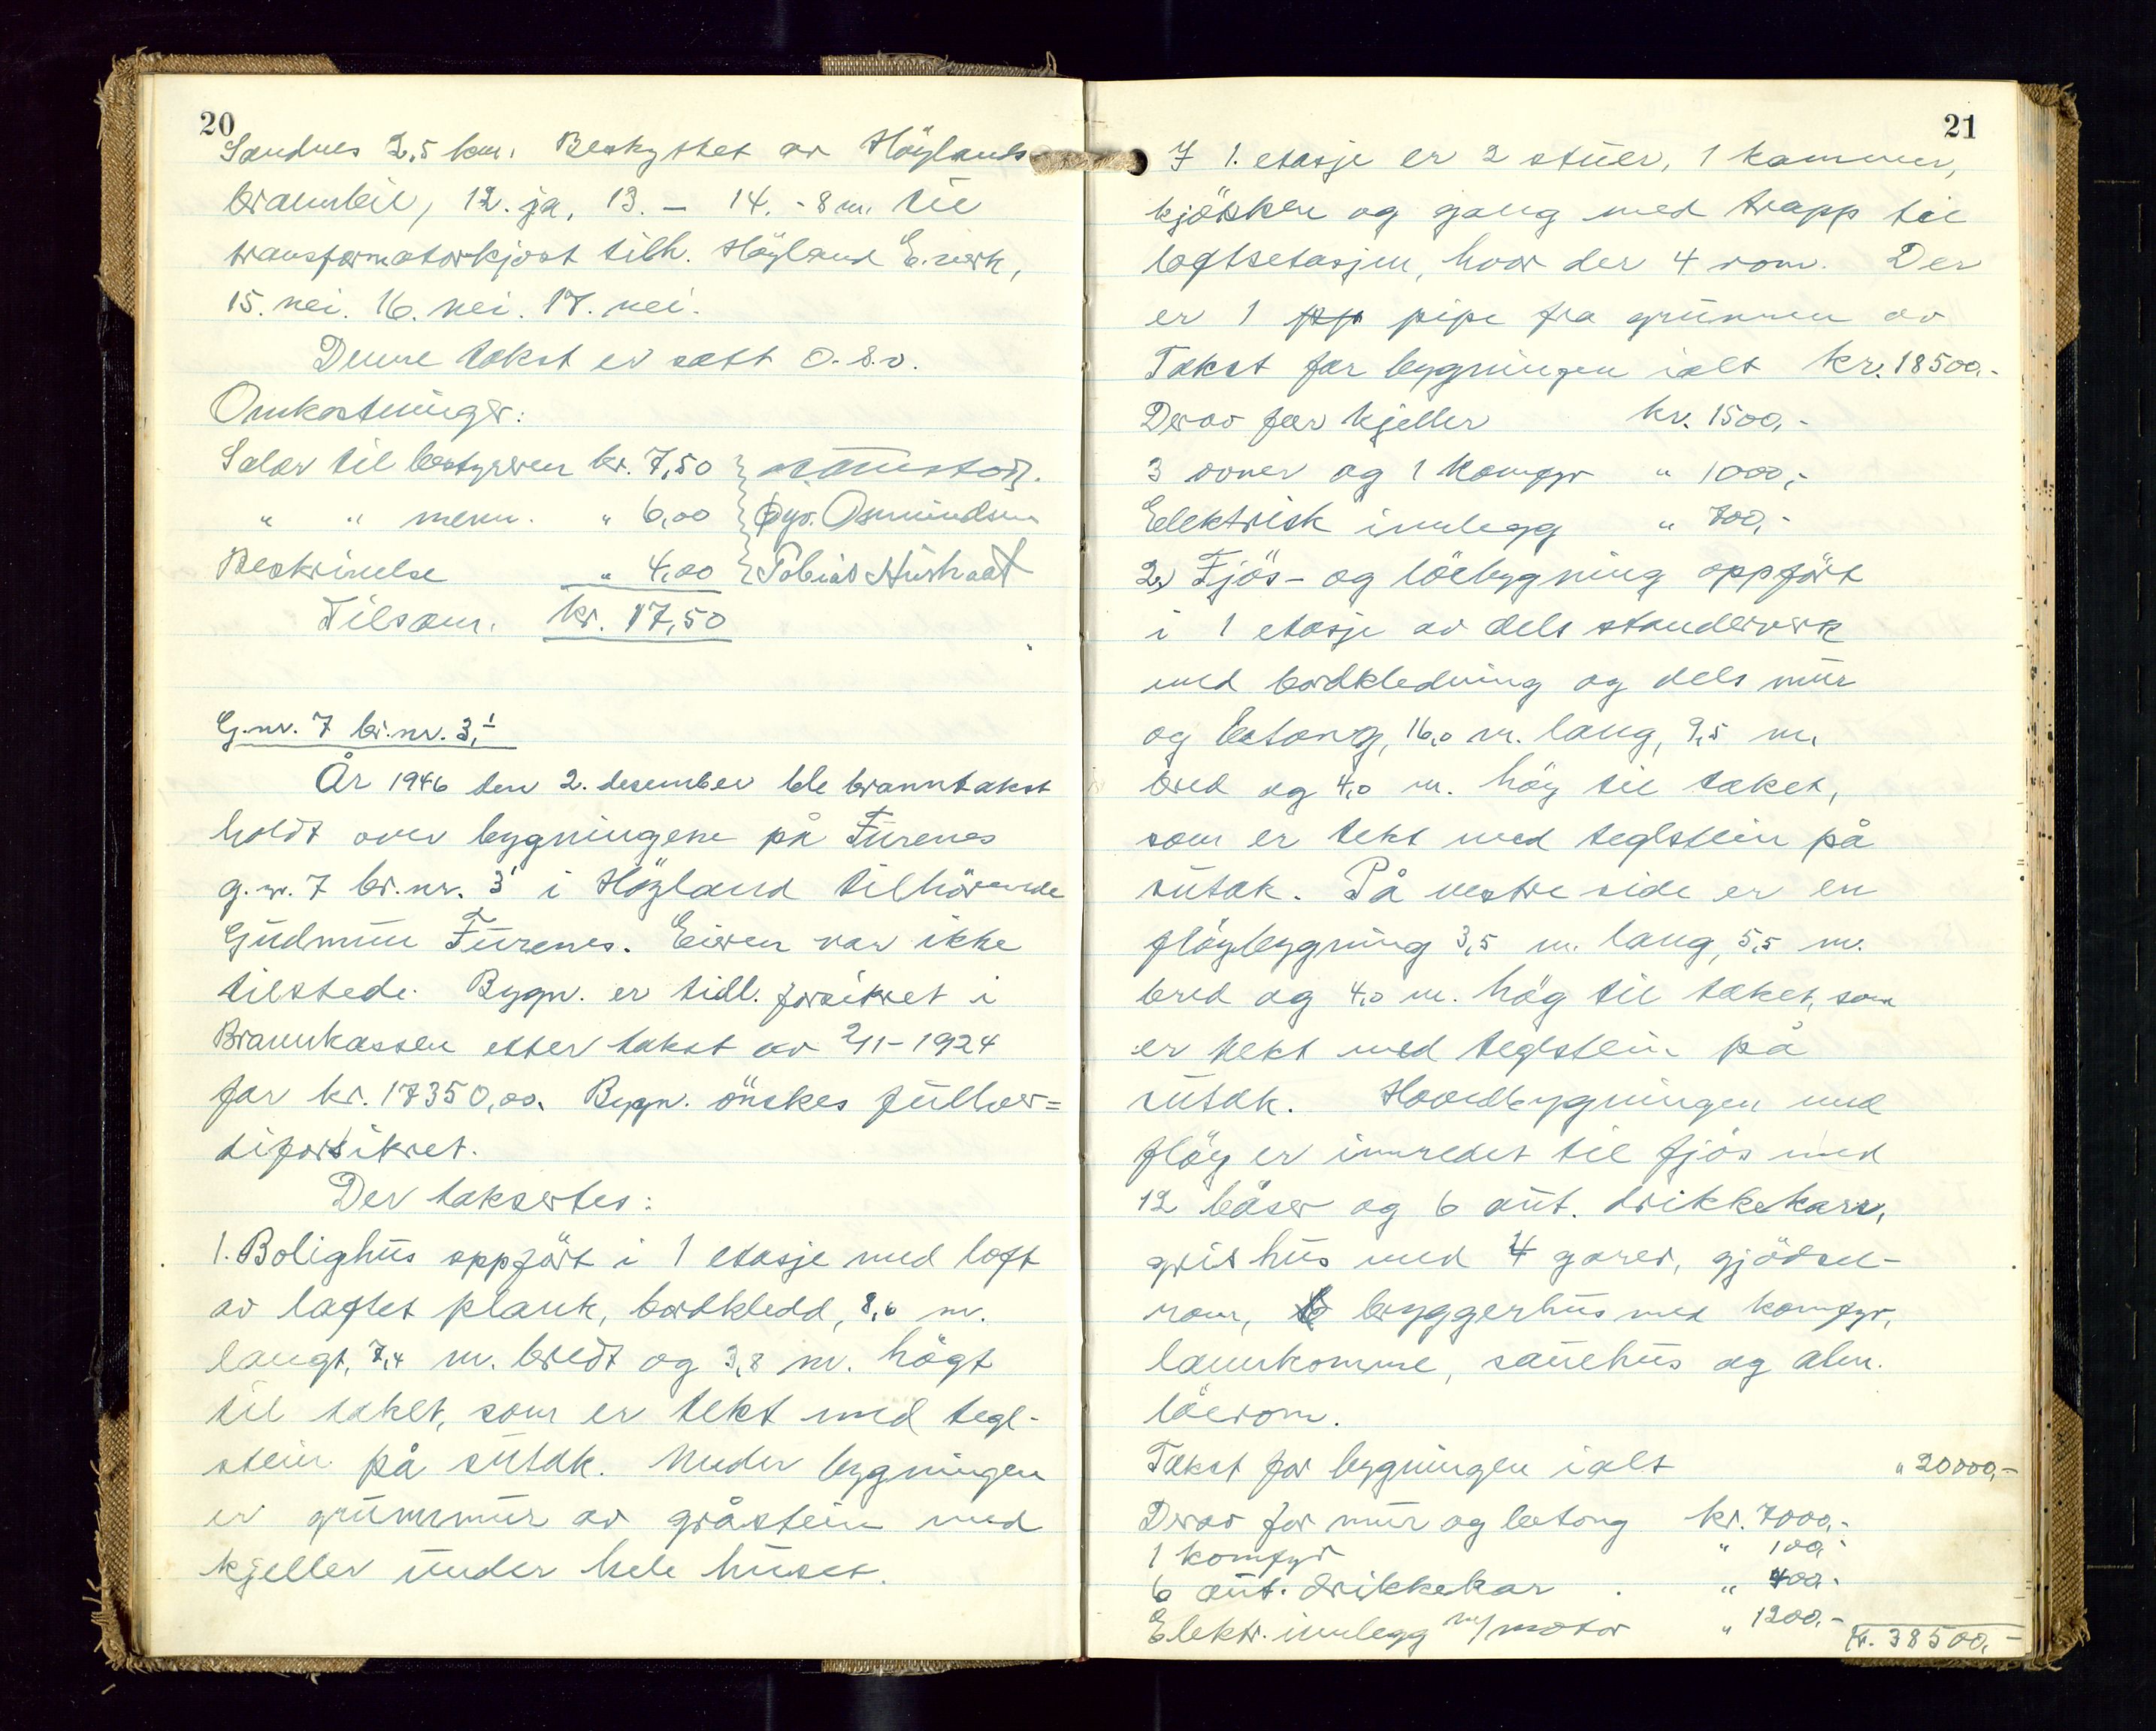 20
Sandnes 2,5 km. Beskyttet av Höylands
brannbil, 12. ja. 13. – 14. - 8 m. til
transformatorkjost tilh. Höyland E.verk,
15. nei. 16. nei. 17. nei.
Denne takst er satt o.s.v.
Omkostninger:
Salær til bestyreren kr. 7,50
" " menn. " 6,00 Osmundsen
Beskrivelse " 4,00 Tobias
Tilsam. kr. 17,50
G.nr. 7 br.nr. 3,1
År 1946 den 2. desember ble branntakst
holdt over bygningene på Furenes
g.nr. 7 br.nr. 31 i Höyland tilhörende
Gudmun Furenes. Eieren var ikke
tilstede. Bygn. er tidl. forsikret i
Brannkassen etter takst av 2/11-1924
for kr. 17350,00. Bygn. önskes fullver=
diforsikret.
Der taksertes:
1. Bolighus oppfört i 1 etasje med loft
av laftet plank, bordkledd, 8,6 m.
langt, 7,4 m. bredt og 3,8 m. högt
til taket, som er tekt med tegl-
stein på sutak. Under bygningen
er grunnmur av gråstein med
kjeller under hele huset.
21
I 1. etasje er 2 stuer, 1 kammer,
kjökken og gang med trapp til
loftsetasjen, hvor der 4 rom. Der
er 1 pipe fra grunnen av
Takst for bygningen ialt kr. 18500.-
Derav for kjeller kr. 1500,-
3 ovner og 1 komfyr " 1000,-
Elektrisk innlegg " 700,-
2. Fjös- og löebygning oppfört
i 1 etasje av dels standerverk
med bordkledning og dels mur
og betong, 16,0 m. lang, 9,5 m.
bred og 4,0 m. höy til taket,
som er tekt med teglstein på
sutak. På vestre side er en
flöybygning 3,5 m. lang, 5,5 m.
bred og 4,0 m. hög til taket, som
er tekt med teglstein på
sutak. Hovedbygningen med
flöy er innredet til fjös med
12 båser og 6 aut. drikkekarr,
grishus med 4 garer, gjödsel-
rom, bryggerhus med komfyr,
lannkomme, sauehus og alm.
löerom.
Takst for bygningen ialt " 20000,-
Derav for mur og betong kr. 7000,-
1 komfyr " 100,-
6 aut. drikkekar " 400,-
Elektr. innlegg m/motor " 1200,-
Kr. 38500,-